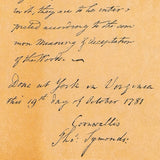 bols, they are to be inter-
preted according to the com
mon Meaning & Acceptation
of the Words.
Done at York in Virginia
this 19th day of October 1781
Cornwallis
Thos. Symonds